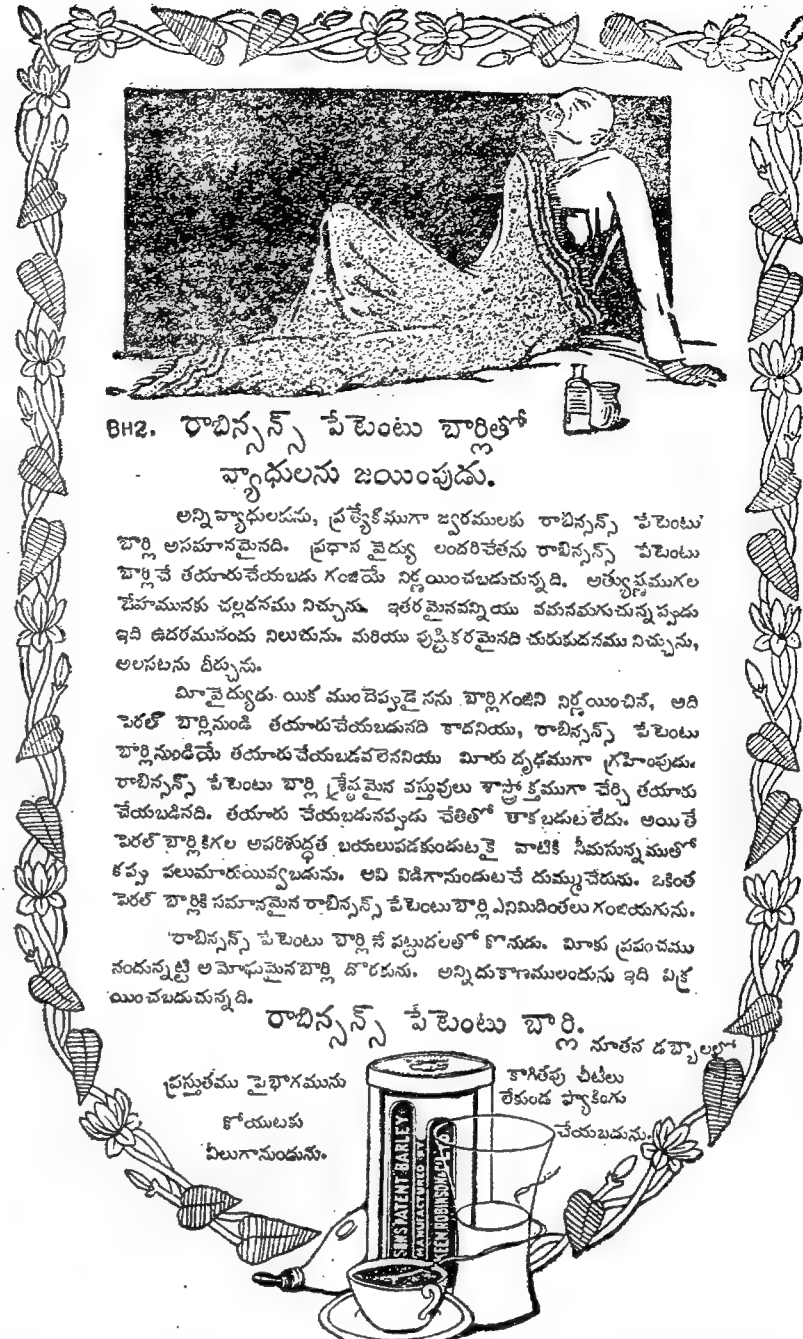 BH2. రాబిన్సన్స్ పేటెంటు బార్లితో
వ్యాధులను జయింపుడు.
అన్నివ్యాధులకును, ప్రత్యేకముగా జ్వరములకు రాబిన్సన్స్ పేటెంటు
బార్లి అసమానమైనది. ప్రధాన వైద్యు లందరిచేతను రాబిన్సన్స్ పేటెంటు
బార్లిచే తయారుచేయబడు గంజియే నిర్ణయించబడుచున్నది. అత్యుష్ణముగల
దేహమునకు చల్లదనము నిచ్చును. ఇతరమైనవన్నియు వమనమగుచున్నప్పుడు
ఇది ఉదరమునందు నిలుచును. మరియు పుష్టికరమైనది చురుకుదనము నిచ్చును,
అలసటను దీర్చును.
మీవైద్యుడు యిక ముందెప్పుడైనను బార్లిగంజిని నిర్ణయించిన, అది
పెరల్ బార్లినుండి తయారుచేయబడునది కాదనియు, రాబిన్సన్స్ పేటెంటు
బార్లినుండియే తయారుచేయబడవలెననియు మీరు దృఢముగా గ్రహింపుడు.
రాబిన్సన్స్ పేటెంటు బార్లి శ్రేష్ఠమైన వస్తువులు శాస్త్రోక్తముగా చేర్చి తయారు
చేయబడినది. తయారు చేయబడునప్పుడు చేతితో తాకబడుట లేదు. అయితే
పెరల్ బార్లికిగల అపరిశుద్ధత బయలుపడకుండుటకై వాటికి సీమసున్నముతో
కప్పు పలుమారుయివ్వబడును. అవి విడిగానుండుటచే దుమ్ముచేరును. ఒకింత
పెరల్ బార్లికి సమానమైన రాబిన్సన్స్ పేటెంటుబార్లి ఎనిమిదింతలు గంజియగును.
రాబిన్సన్స్ పేటెంటు బార్లి నే పట్టుదలతో కొనుడు. మీకు ప్రపంచము
నందున్నట్టి అమోఘమైనబార్లి దొరకును. అన్నిదుకాణములందును ఇది విక్ర
యించబడుచున్నది.
రాబిన్సన్స్ పేటెంటు బార్లి.
నూతన డబ్బాలలో
ప్రస్తుతము పైభాగమును
కోయుటకు
వీలుగానుండును.
కాగితపు చీటీలు
లేకుండ ప్యాకింగు
చేయబడును.
SON'S PATENT BARLEY
MANUFACTURED BY
KEEN ROBINSON & CO LTD